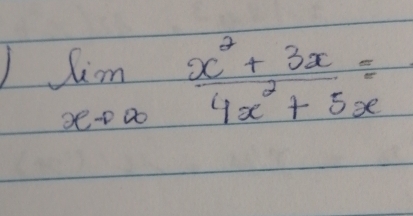 ) lim x→∞ x² + 3x / 4x² + 5x =